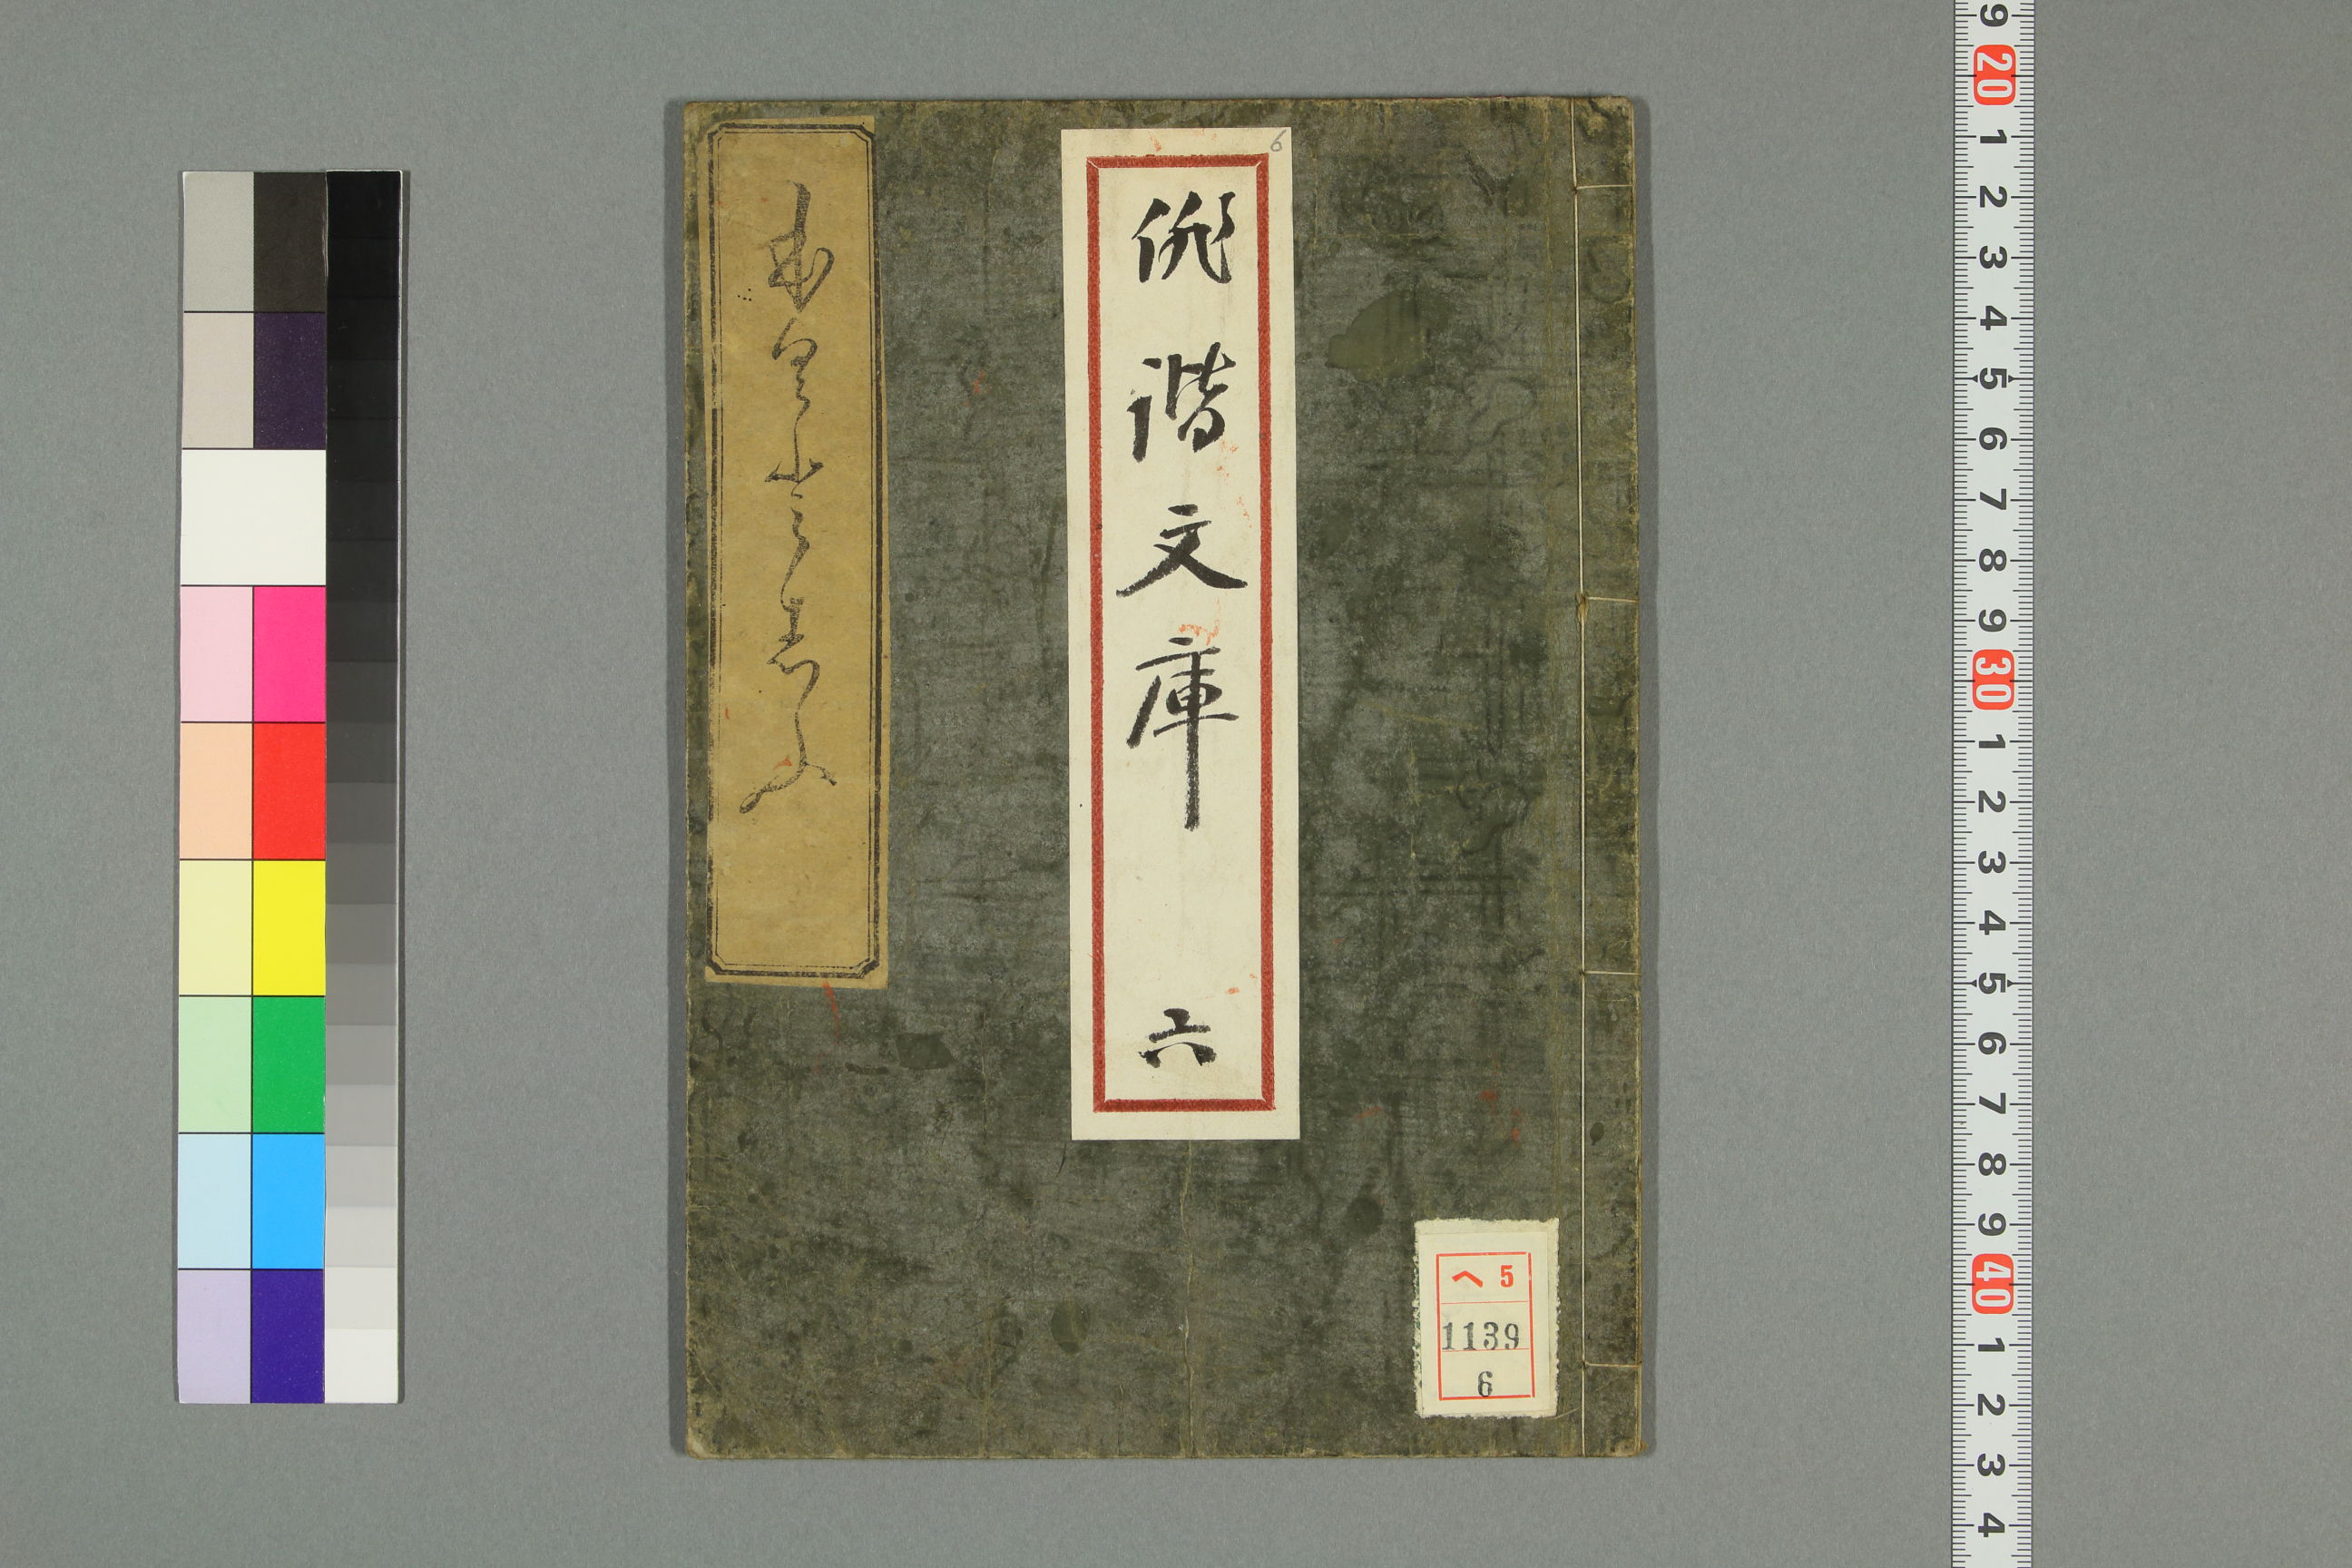 6
俳諧文庫　六
ヘ 5
1139
6
9
20
1
2
3
4
5
6
7
8
9
30
1
2
3
4
5
6
7
8
9
40
1
2
3
4